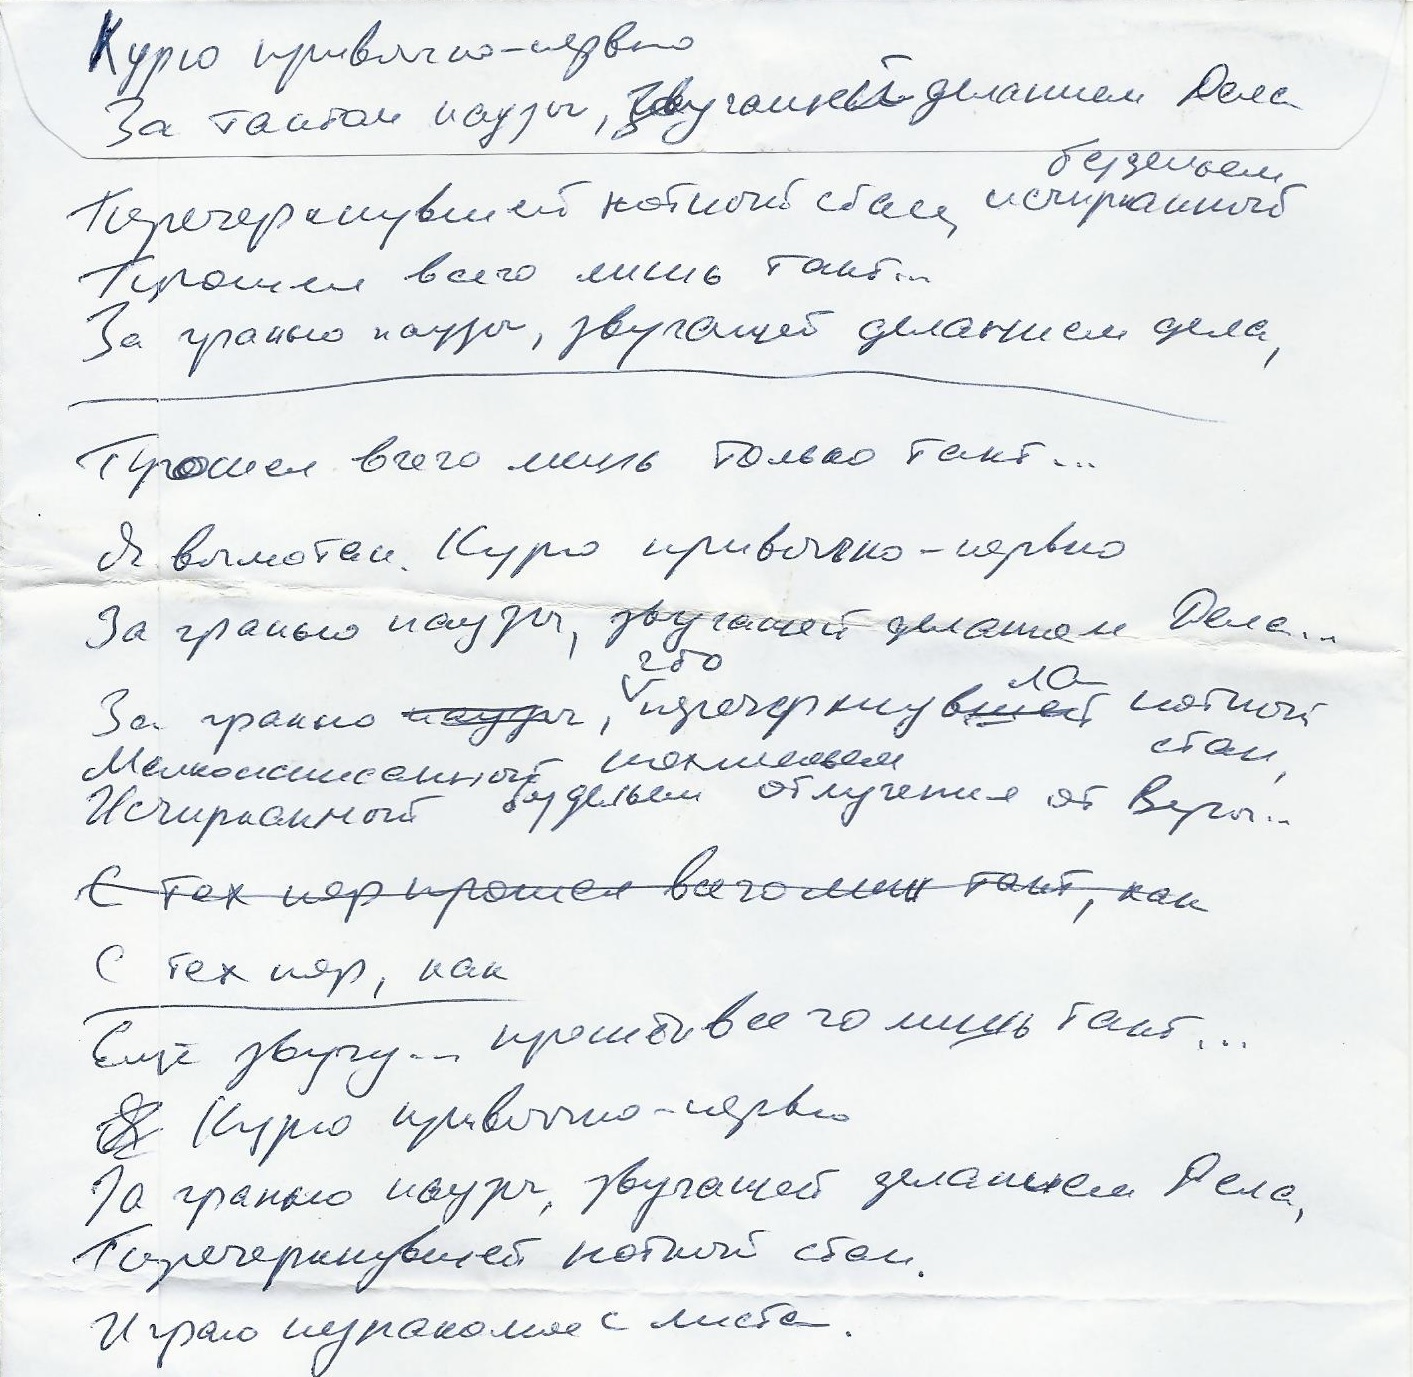 Курю привычно-нервно
За тактом паузы, звучащей деланием Дела
бездельем
Перечеркнувшей нотный стан, исчирканный
Прошел всего лишь такт...
За гранью паузы, звучащей деланием дела,
Прошел всего лишь только такт...
Я вымотан. Курю привычно-нервно
За гранью паузы, звучащей деланием Дела...
что ла
За гранью паузы, перечеркнувшей нотный
стан,
Мелкоисписанный
Исчирканный бездельем отлучения от Веры...
С тех пор прошел всего лишь такт, как
С тех пор, как
Ещё звучу... прошёл всего лишь такт...
Я Курю привычно-нервно
За гранью паузы, звучащей деланием Дела,
Перечеркнувшей нотный стан.
Играю незнакомое с листа.